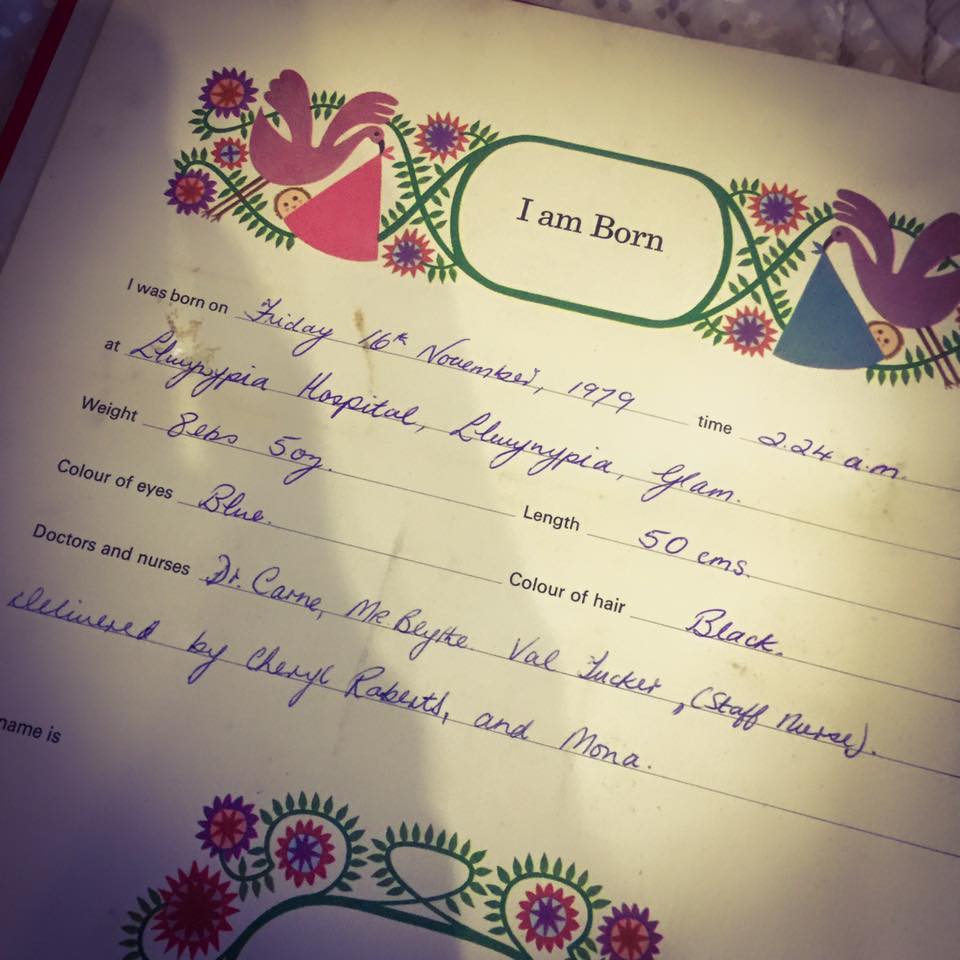 I am Born
I was born on Friday 16th November, 1979 time 2.24 a.m.
at Llwynypia Hospital, Llwynypia, Glam.
Weight 8lbs 5oz. Length 50 cms.
Colour of eyes Blue. Colour of hair Black.
Doctors and nurses Dr. Carne, Mr Blythe. Val Tucker, (Staff Nurse).
Delivered by Cheryl Roberts, and Mona.
name is